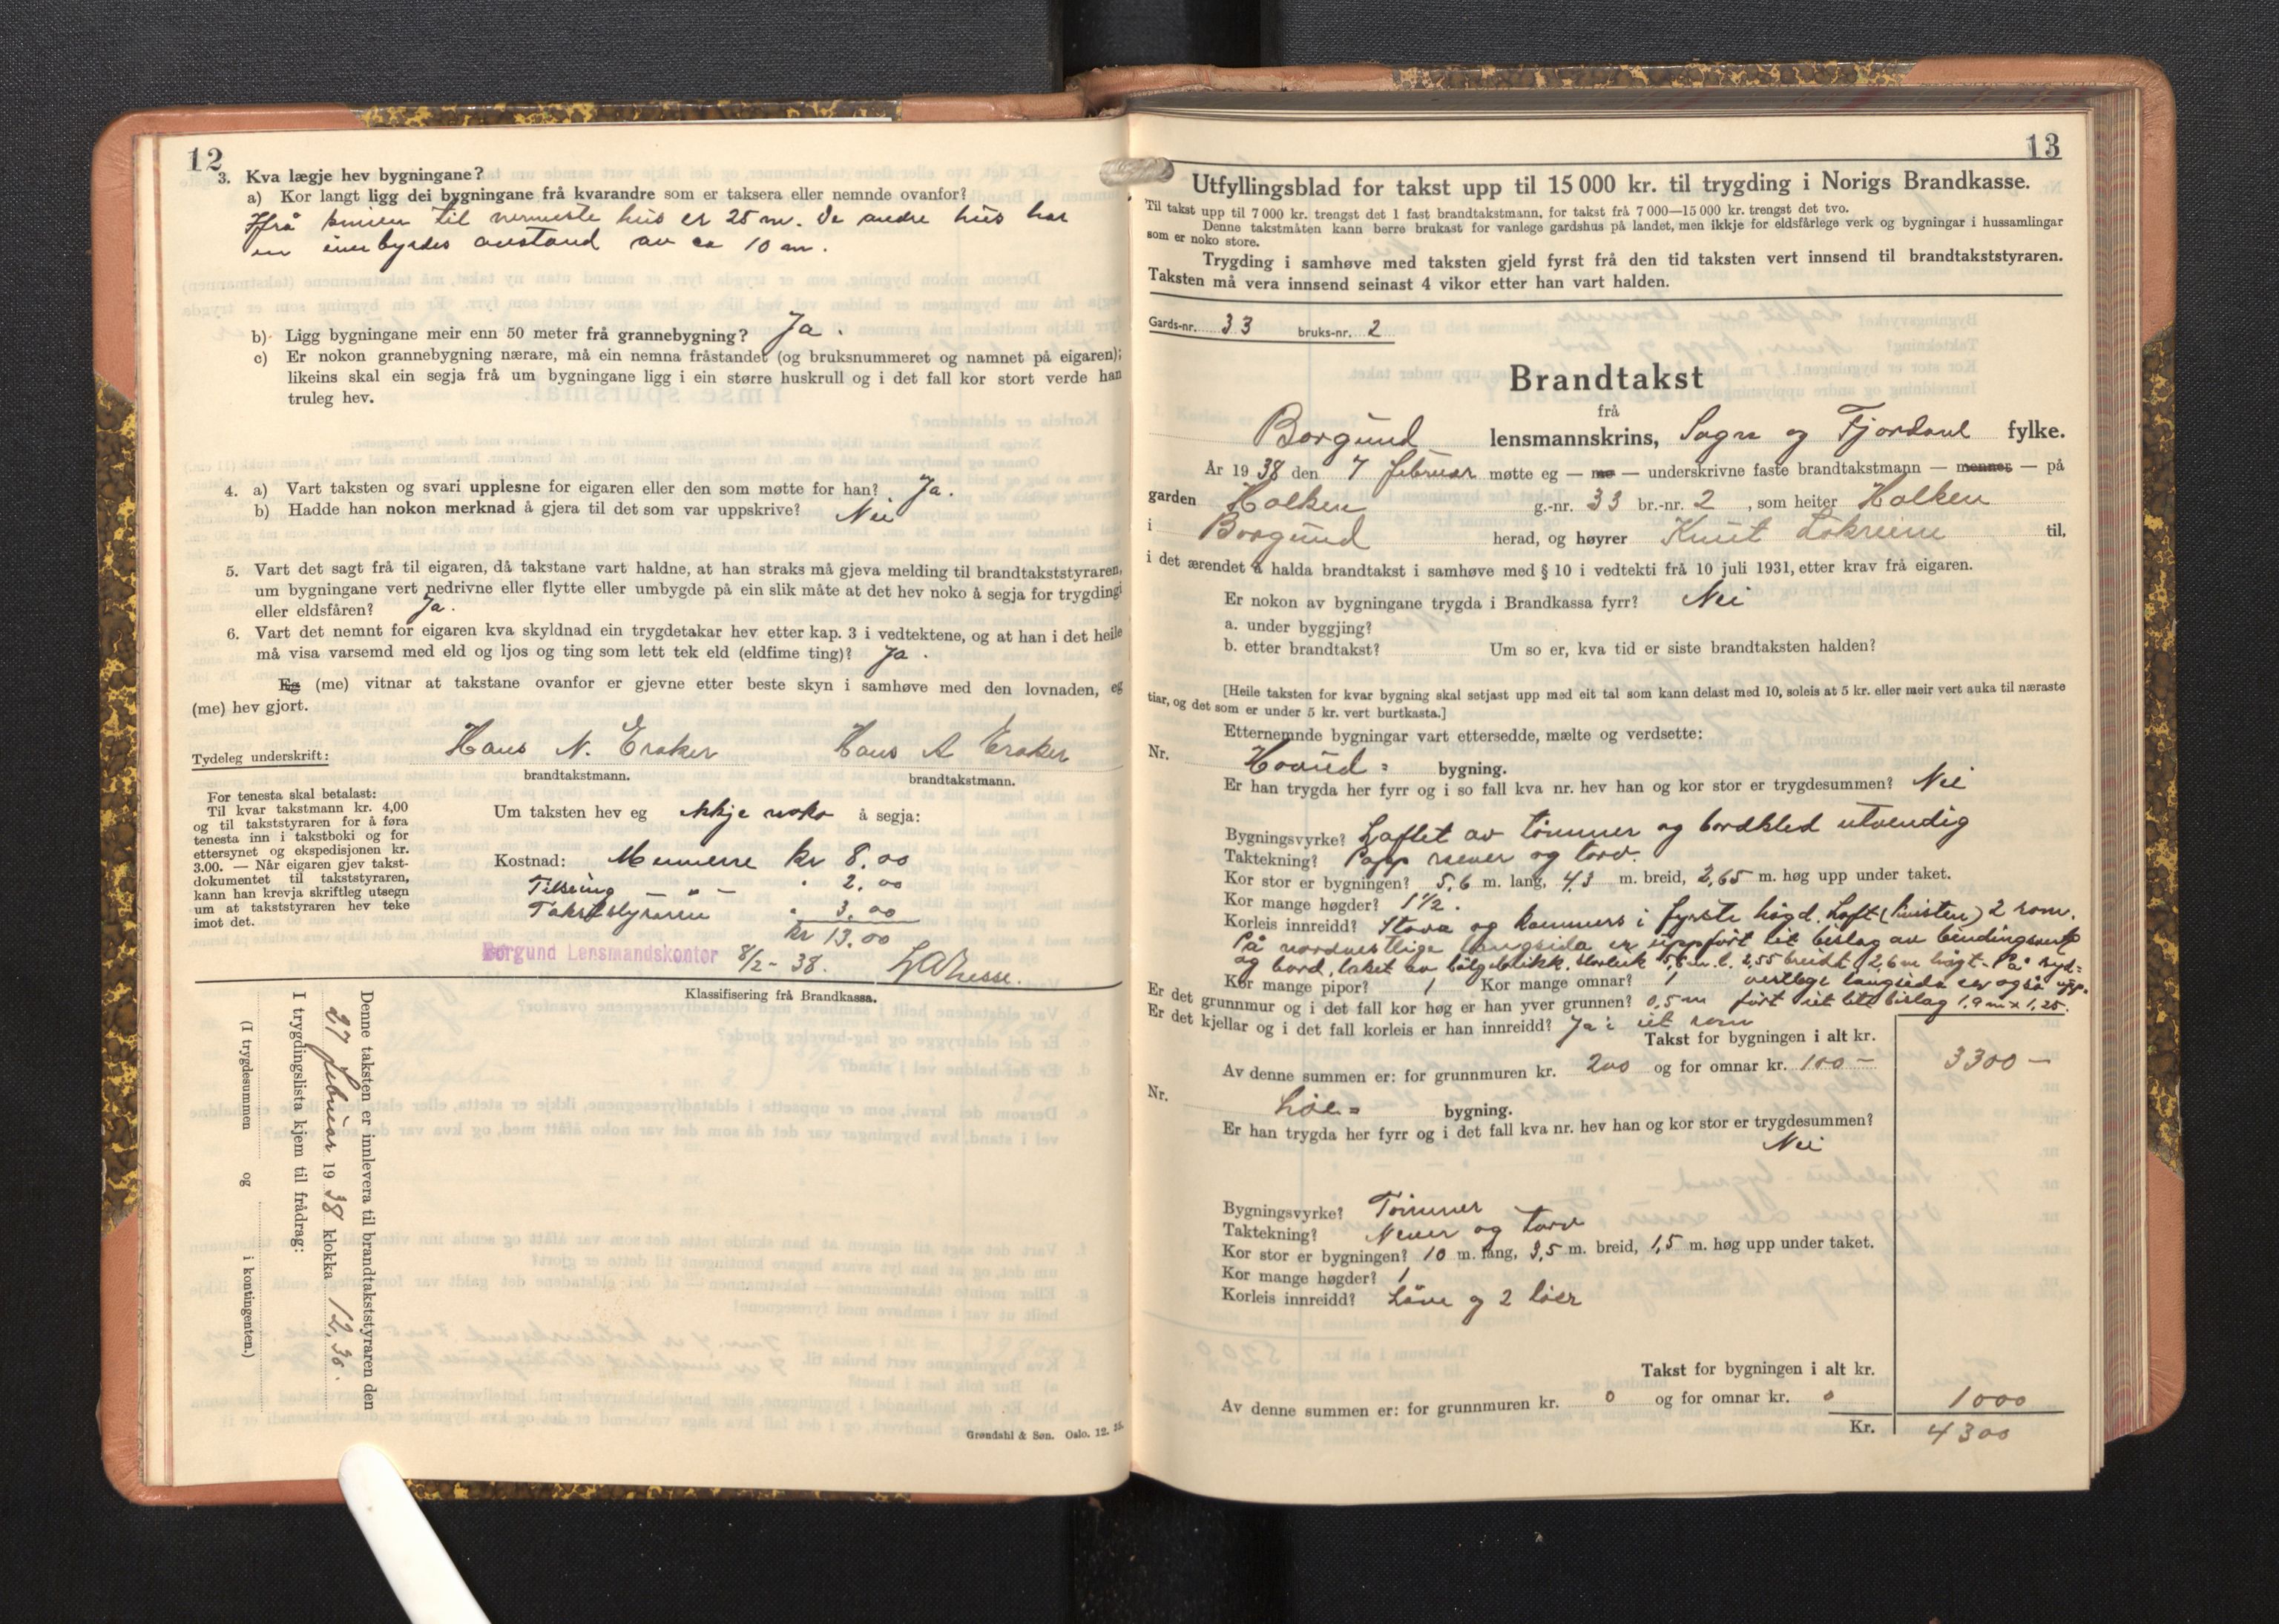 12
3. Kva lægje hev bygningane?
a) Kor langt ligg dei bygningane frå kvarandre som er taksera eller nemnde ovanfor?
til nermeste hus er 25 m. De andre hus har
en inn byrdes avstand av ca 10 m.
b) Ligg bygningane meir enn 50 meter frå grannebygning? Ja.
c) Er nokon grannebygning nærare, må ein nemna fråstandet (og bruksnummeret og namnet på eigaren);
likeins skal ein segja frå um bygningane ligg i ein større huskrull og i det fall kor stort verde han
truleg hev.
4. a) Vart taksten og svari upplesne for eigaren eller den som møtte for han? Ja.
b) Hadde han nokon merknad å gjera til det som var uppskrive? Nei
5. Vart det sagt frå til eigaren, då takstane vart haldne, at han straks må gjeva melding til brandtakststyraren,
um bygningane vert nedrivne eller flytte eller umbygde på ein slik måte at det hev noko å segja for trygdingi
eller eldsfåren? Ja.
6. Vart det nemnt for eigaren kva skyldnad ein trygdetakar hev etter kap. 3 i vedtektene, og at han i det heile
må visa varsemd med eld og ljos og ting som lett tek eld (eldfime ting)? Ja.
Eg (me) vitnar at takstane ovanfor er gjevne etter beste skyn i samhøve med den lovnaden, eg
(me) hev gjort.
Tydeleg underskrift: Hans N. Eraker Hans A Eraker
brandtakstmann. brandtakstmann.
For tenesta skal betalast:
Til kvar takstmann kr. 4,00
og til takststyraren for å føra
tenesta inn i takstboki og for
ettersynet og ekspedisjonen kr.
3.00. — Når eigaren gjev takst-
dokumentet til takststyraren,
kann han krevja skriftleg utsegn
um at takststyraren hev teke
imot det.
Um taksten hev eg ikkje noko å segja:
Kostnad: Mennerne kr 8.00
Tilseing — " — " 2.00
Takststyraren " 3.00
kr 13.00
Borgund Lensmandskontor 8/2 - 38.
Klassifisering frå Brandkassa.
Denne taksten er innlevera til brandtakststyraren den
27 februar 1938 klokka 12,30.
I trygdingslista kjem til frådrag:
(I trygdesummen og i kontingenten.)
Grøndahl & Søn. Oslo. 12. 35.
13
Utfyllingsblad for takst upp til 15 000 kr. til trygding i Norigs Brandkasse.
Til takst upp til 7 000 kr. trengst det 1 fast brandtakstmann, for takst frå 7 000—15 000 kr. trengst det tvo.
Denne takstmåten kann berre brukast for vanlege gardshus på landet, men ikkje for eldsfårlege verk og bygningar i hussamlingar
som er noko store.
Trygding i samhøve med taksten gjeld fyrst frå den tid taksten vert innsend til brandtakststyraren.
Taksten må vera innsend seinast 4 vikor etter han vart halden.
Gards-nr. 33 bruks-nr. 2
Brandtakst
frå
Borgund lensmannskrins, Sogn og Fjordane fylke.
År 1938 den 7 februar møtte eg — me — underskrivne faste brandtakstmann — mennes — på
garden Holken g.-nr. 33 br.-nr. 2, som heiter Holken
i Borgund herad, og høyrer Knut Løkreim til,
i det ærendet å halda brandtakst i samhøve med § 10 i vedtekti frå 10 juli 1931, etter krav frå eigaren.
Er nokon av bygningane trygda i Brandkassa fyrr? Nei
a. under byggjing?
b. etter brandtakst? Um so er, kva tid er siste brandtaksten halden?
[Heile taksten for kvar bygning skal setjast upp med eit tal som kann delast med 10, soleis at 5 kr. eller meir vert auka til næraste
tiar, og det som er under 5 kr. vert burtkasta.]
Etternemnde bygningar vart ettersedde, mælte og verdsette:
Nr. Hovud= bygning.
Er han trygda her fyrr og i so fall kva nr. hev han og kor stor er trygdesummen? Nei
Bygningsvyrke? Laftet av tømmer og bordkled utvendig
Taktekning? Papp never og torv.
Kor stor er bygningen? 5,6 m. lang, 4,3 m. breid, 2,65 m. høg upp under taket.
Kor mange høgder? 1 1/2.
Korleis innreidd? Stova og kammers i fyrste høgd. Loft (kvisten) 2 rom.
På nordvestlige langsida er uppført eit bislag av bindingsverk
og bord, taket av bølgeblikk. Storleik 5,6 m. l. 2,55 breidt 2,6 m høgt. På syd=
Kor mange pipor? 1 Kor mange omnar? 1 vestlege langsida er også upp-
Er det grunnmur og i det fall kor høg er han yver grunnen? 0,5 m ført eit lite bislag 1,9 m x 1,25.
Er det kjellar og i det fall korleis er han innreidd? Ja: eit rom
Takst for bygningen i alt kr.
Av denne summen er: for grunnmuren kr. 200 og for omnar kr. 100 — 3300 —
Nr. Løe= bygning.
Er han trygda her fyrr og i det fall kva nr. hev han og kor stor er trygdesummen?
Nei
Bygningsvyrke? Tømmer
Taktekning? Never og torv
Kor stor er bygningen? 10 m. lang, 3,5 m. breid, 1,5 m. høg upp under taket.
Kor mange høgder? 1
Korleis innreidd? Låve og 2 løer
Takst for bygningen i alt kr.
Av denne summen er: for grunnmuren kr. 0 og for omnar kr. 0 1000
Kr. 4300